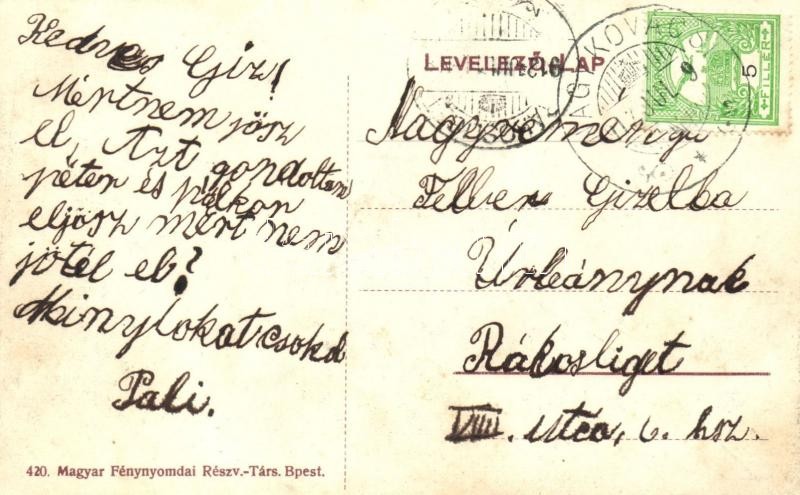 Kedves Giz!
Mértnem jösz
el, Azt gondoltam
péter és pálkor
eljösz mért nem
jötél el?
csokol
Pali.
420. Magyar Fénynyomdai Részv.-Társ. Bpest.
LEVELEZŐ-LAP
5
FILLÉR
Gizella
Úrleánynak
Rákosliget
VIII. utca, 6. hsz.